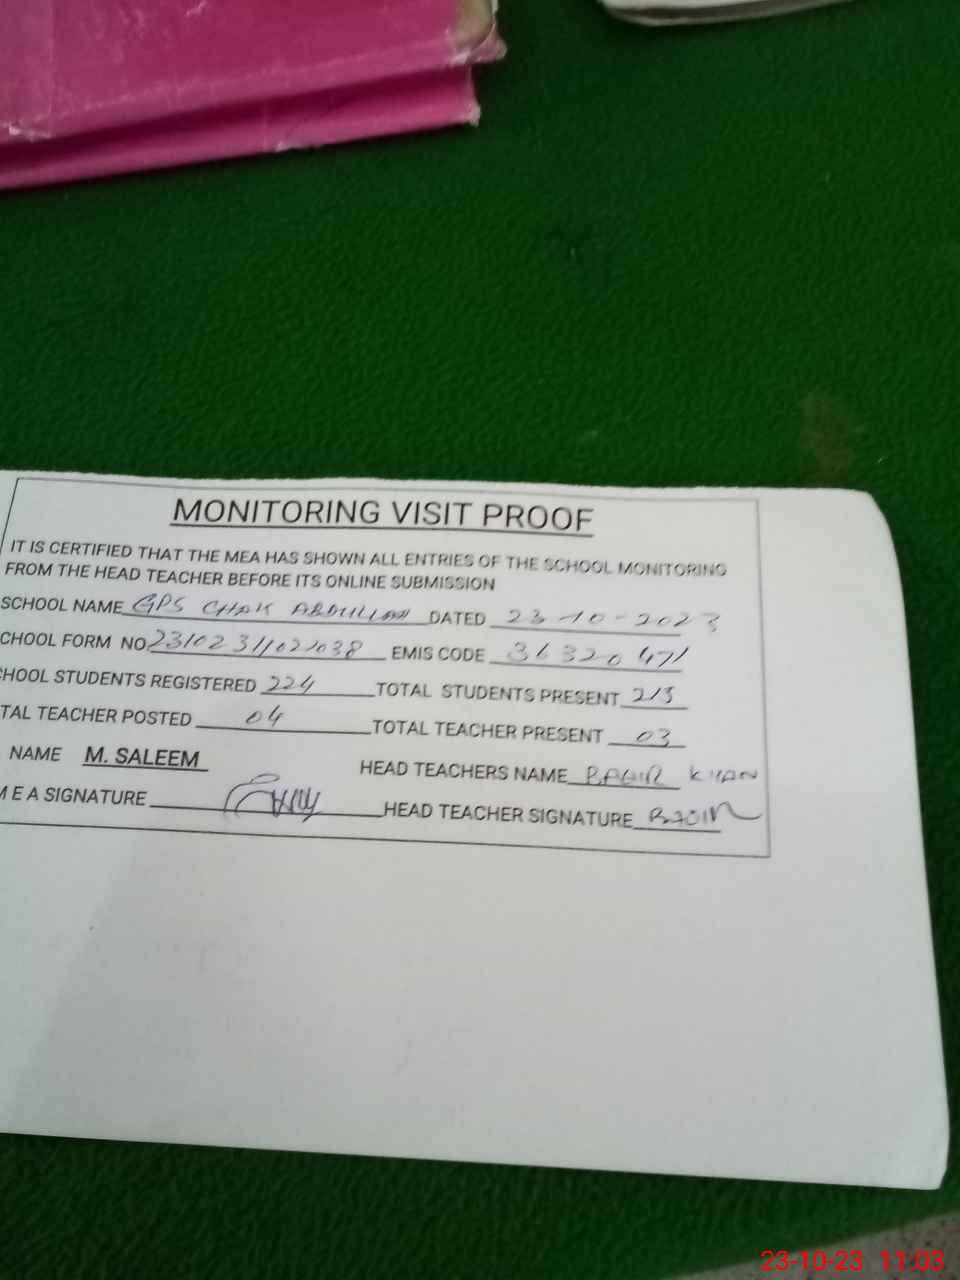 MONITORING VISIT PROOF
IT IS CERTIFIED THAT THE MEA HAS SHOWN ALL ENTRIES OF THE SCHOOL MONITORING
FROM THE HEAD TEACHER BEFORE ITS ONLINE SUBMISSION
SCHOOL NAME GPS CHAK ABDULLAH DATED 23-10-2023
CHOOL FORM NO EMIS CODE 36320471
HOOL STUDENTS REGISTERED 224 TOTAL STUDENTS PRESENT 213
TAL TEACHER POSTED 04 TOTAL TEACHER PRESENT 03
NAME M. SALEEM HEAD TEACHERS NAME BAQIR KHAN
M E A SIGNATURE HEAD TEACHER SIGNATURE BAQIR
23-10-23 11:03